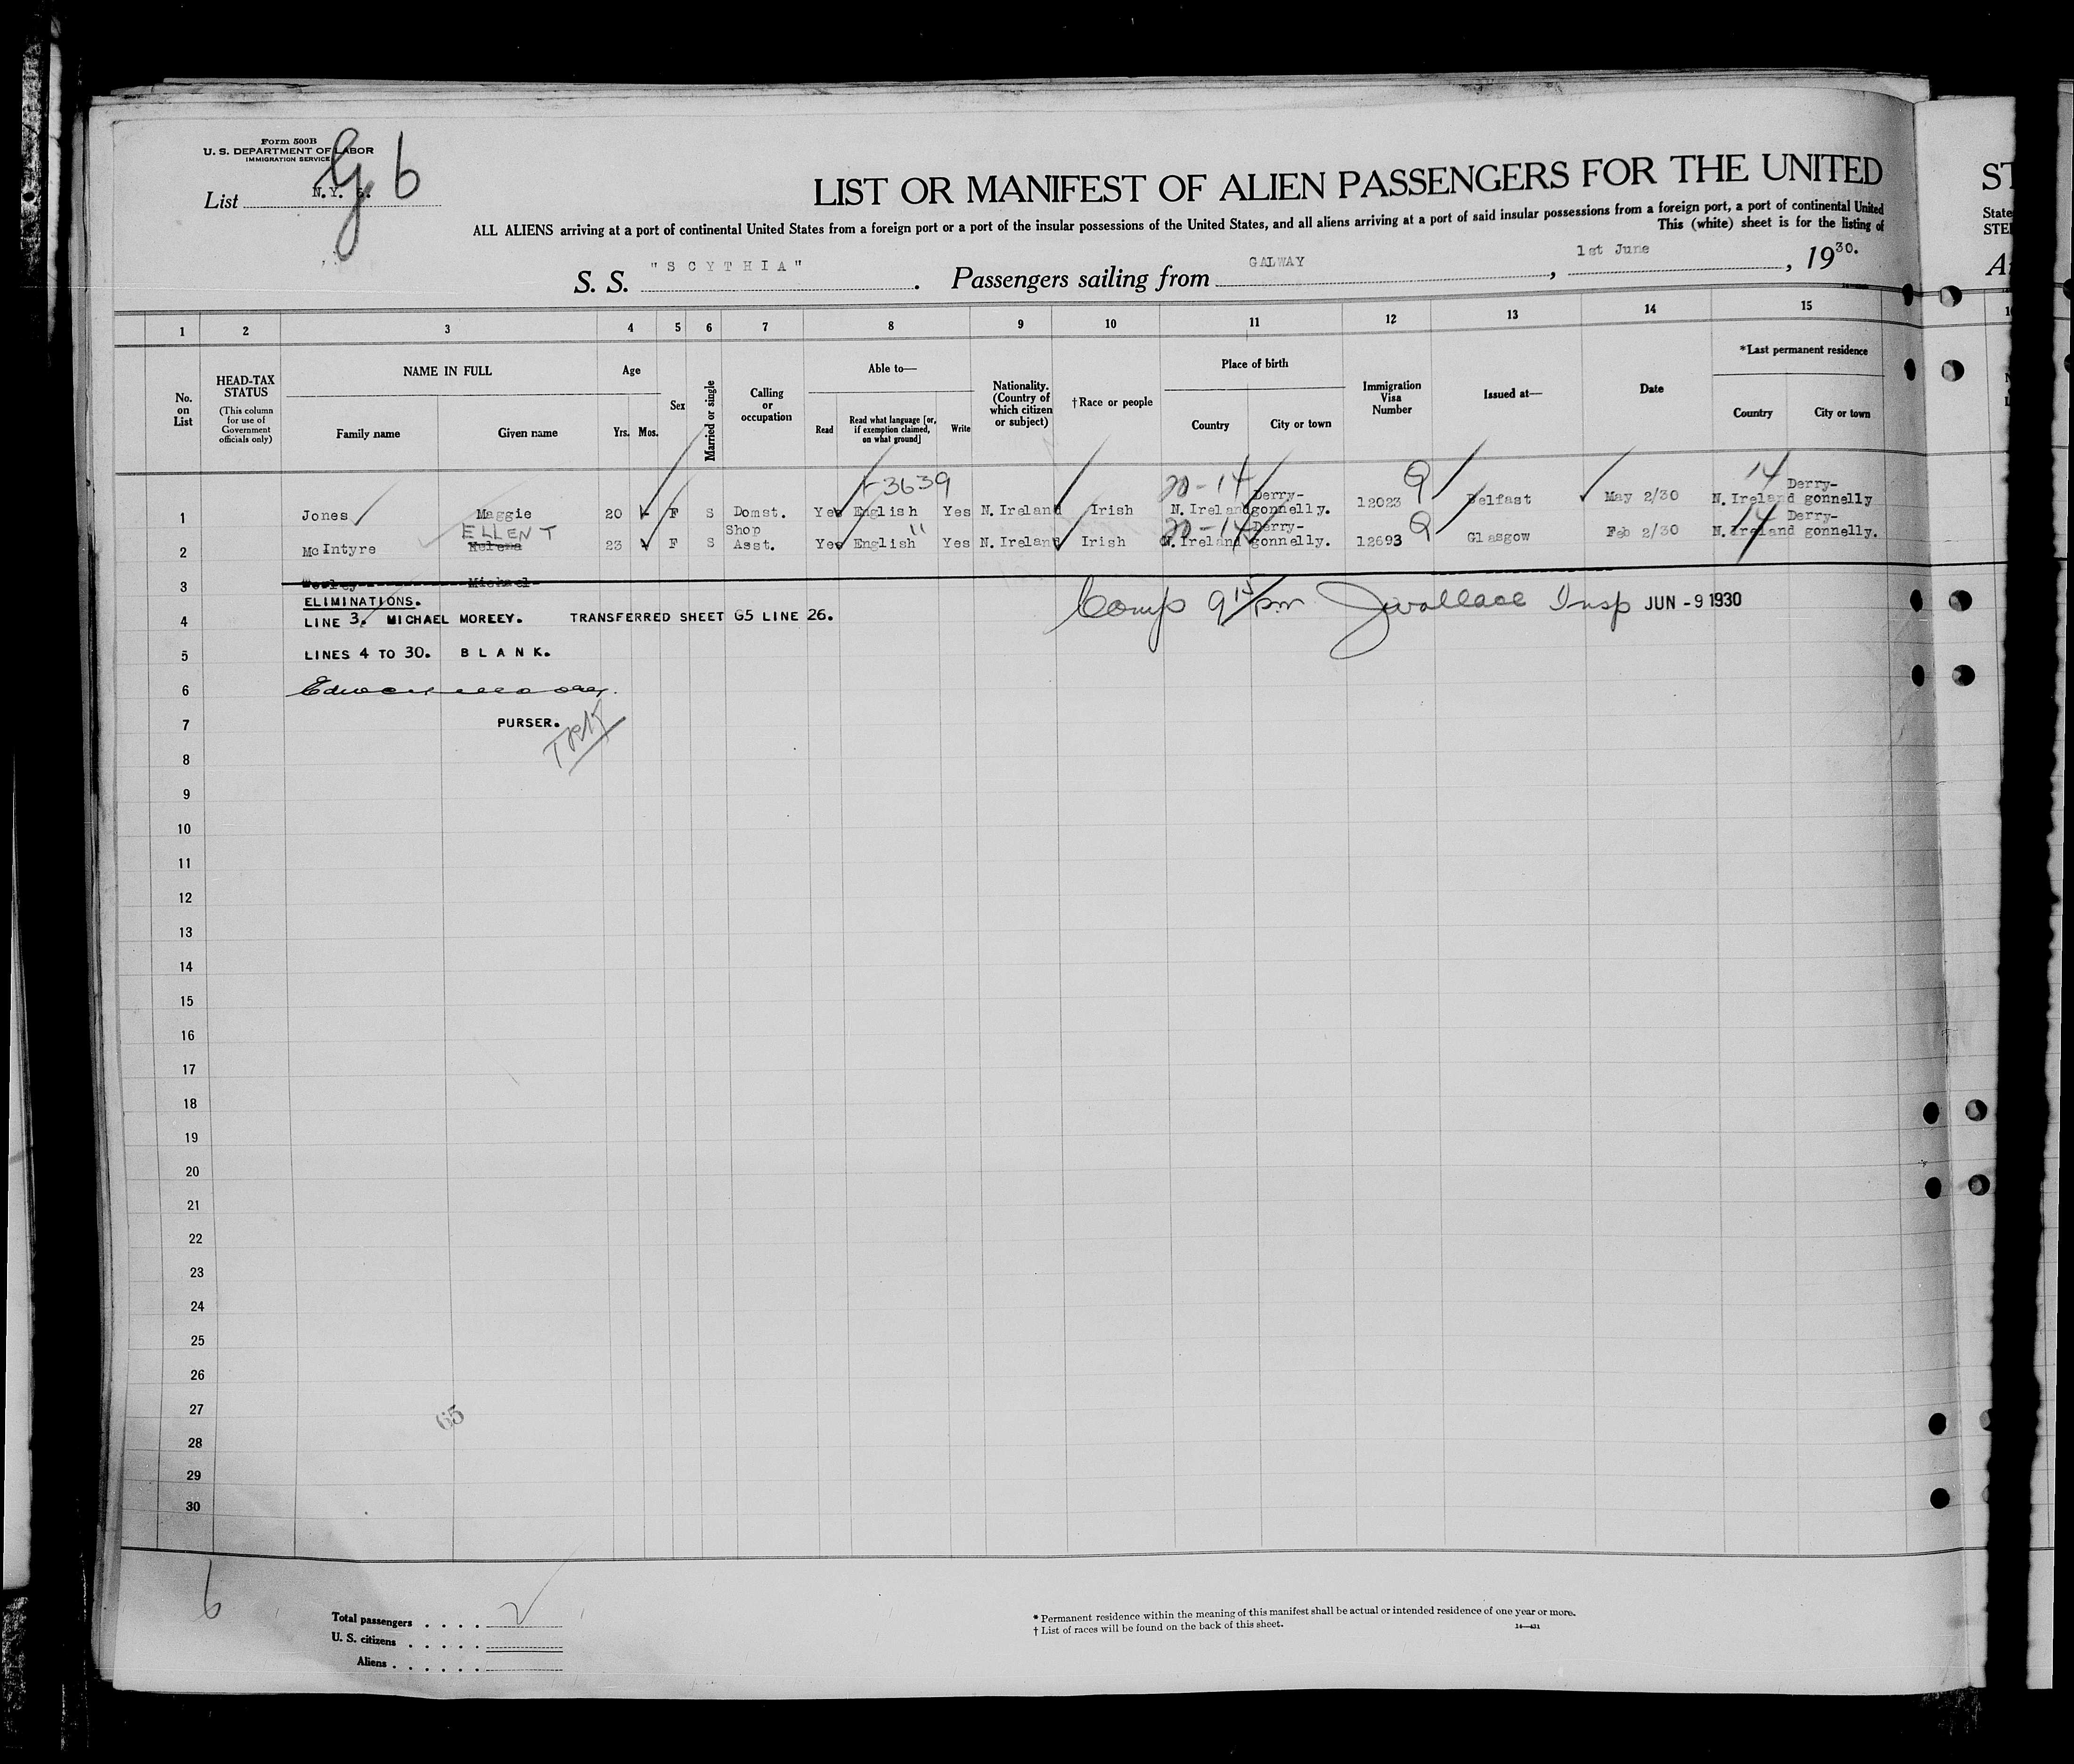 Form 500B
U. S. DEPARTMENT OF LABOR
IMMIGRATION SERVICE
G 6
List N.Y. 6.
LIST OR MANIFEST OF ALIEN PASSENGERS FOR THE UNITED
ST
ALL ALIENS arriving at a port of continental United States from a foreign port or a port of the insular possessions of the United States, and all aliens arriving at a port of said insular possessions from a foreign port, a port of continental United
State
This (white) sheet is for the listing of
STE
S. S. "SCYTHIA". Passengers sailing from GALWAY, 1st June, 1930.
1 2 3 4 5 6 7 8 9 10 11 12 13 14 15
No. on List
HEAD-TAX STATUS
(This column for use of Government officials only)
NAME IN FULL
Family name Given name
Age
Yrs. Mos.
Sex
Married or single
Calling or occupation
Able to—
Read
Read what language [or, if exemption claimed, on what ground]
Write
Nationality. (Country of which citizen or subject)
†Race or people
Place of birth
Country City or town
Immigration Visa Number
Issued at—
Date
*Last permanent residence
Country City or town
3639 20-14 Q 14
1 Jones Maggie 20 F S Domst. Yes English Yes N. Ireland Irish N. Ireland Derry-gonnelly. 12023 Belfast May 2/30 N. Ireland Derry-gonnelly
ELLEN T " 20-14 Q 14
2 McIntyre Helena 23 F S Shop Asst. Yes English Yes N. Ireland Irish N. Ireland Derry-gonnelly. 12693 Glasgow Feb 2/30 N. Ireland Derry-gonnelly.
3 Michael
ELIMINATIONS.
4 LINE 3. MICHAEL MOREEY. TRANSFERRED SHEET G5 LINE 26. Comp 9 15 pm J Wallace Insp JUN - 9 1930
5 LINES 4 TO 30. BLANK.
6
7 PURSER.
8
9
10
11
12
13
14
15
16
17
18
19
20
21
22
23
24
25
26
27
65
28
29
30
6
Total passengers
U. S. citizens
Aliens
* Permanent residence within the meaning of this manifest shall be actual or intended residence of one year or more.
† List of races will be found on the back of this sheet.
14—431